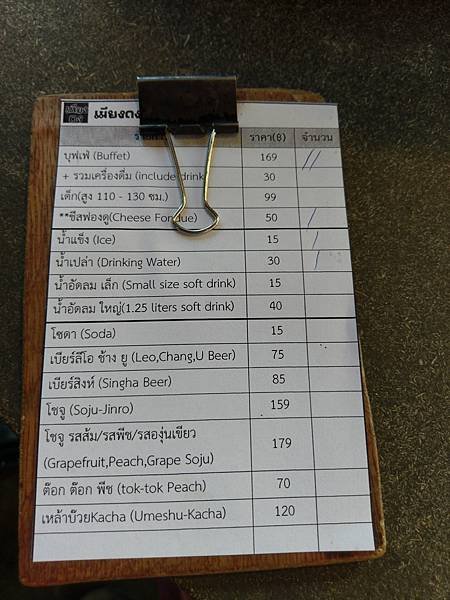 เพียงดง
ราคา(฿) จำนวน
บุฟเฟ่ (Buffet) 169 //
+ รวมเครื่องดื่ม (include drink 30
เด็ก(สูง 110 - 130 ซม.) 99
**ชีสฟองดู(Cheese Fondue) 50 /
น้ำแข็ง (Ice) 15 /
น้ำเปล่า (Drinking Water) 30 /
น้ำอัดลม เล็ก (Small size soft drink) 15
น้ำอัดลม ใหญ่(1.25 liters soft drink) 40
โซดา (Soda) 15
เบียร์ลีโอ ช้าง ยู (Leo,Chang,U Beer) 75
เบียร์สิงห์ (Singha Beer) 85
โซจู (Soju-Jinro) 159
โซจู รสส้ม/รสพีช/รสองุ่นเขียว
(Grapefruit,Peach,Grape Soju) 179
ต๊อก ต๊อก พีช (tok-tok Peach) 70
เหล้าบ๊วยKacha (Umeshu-Kacha) 120